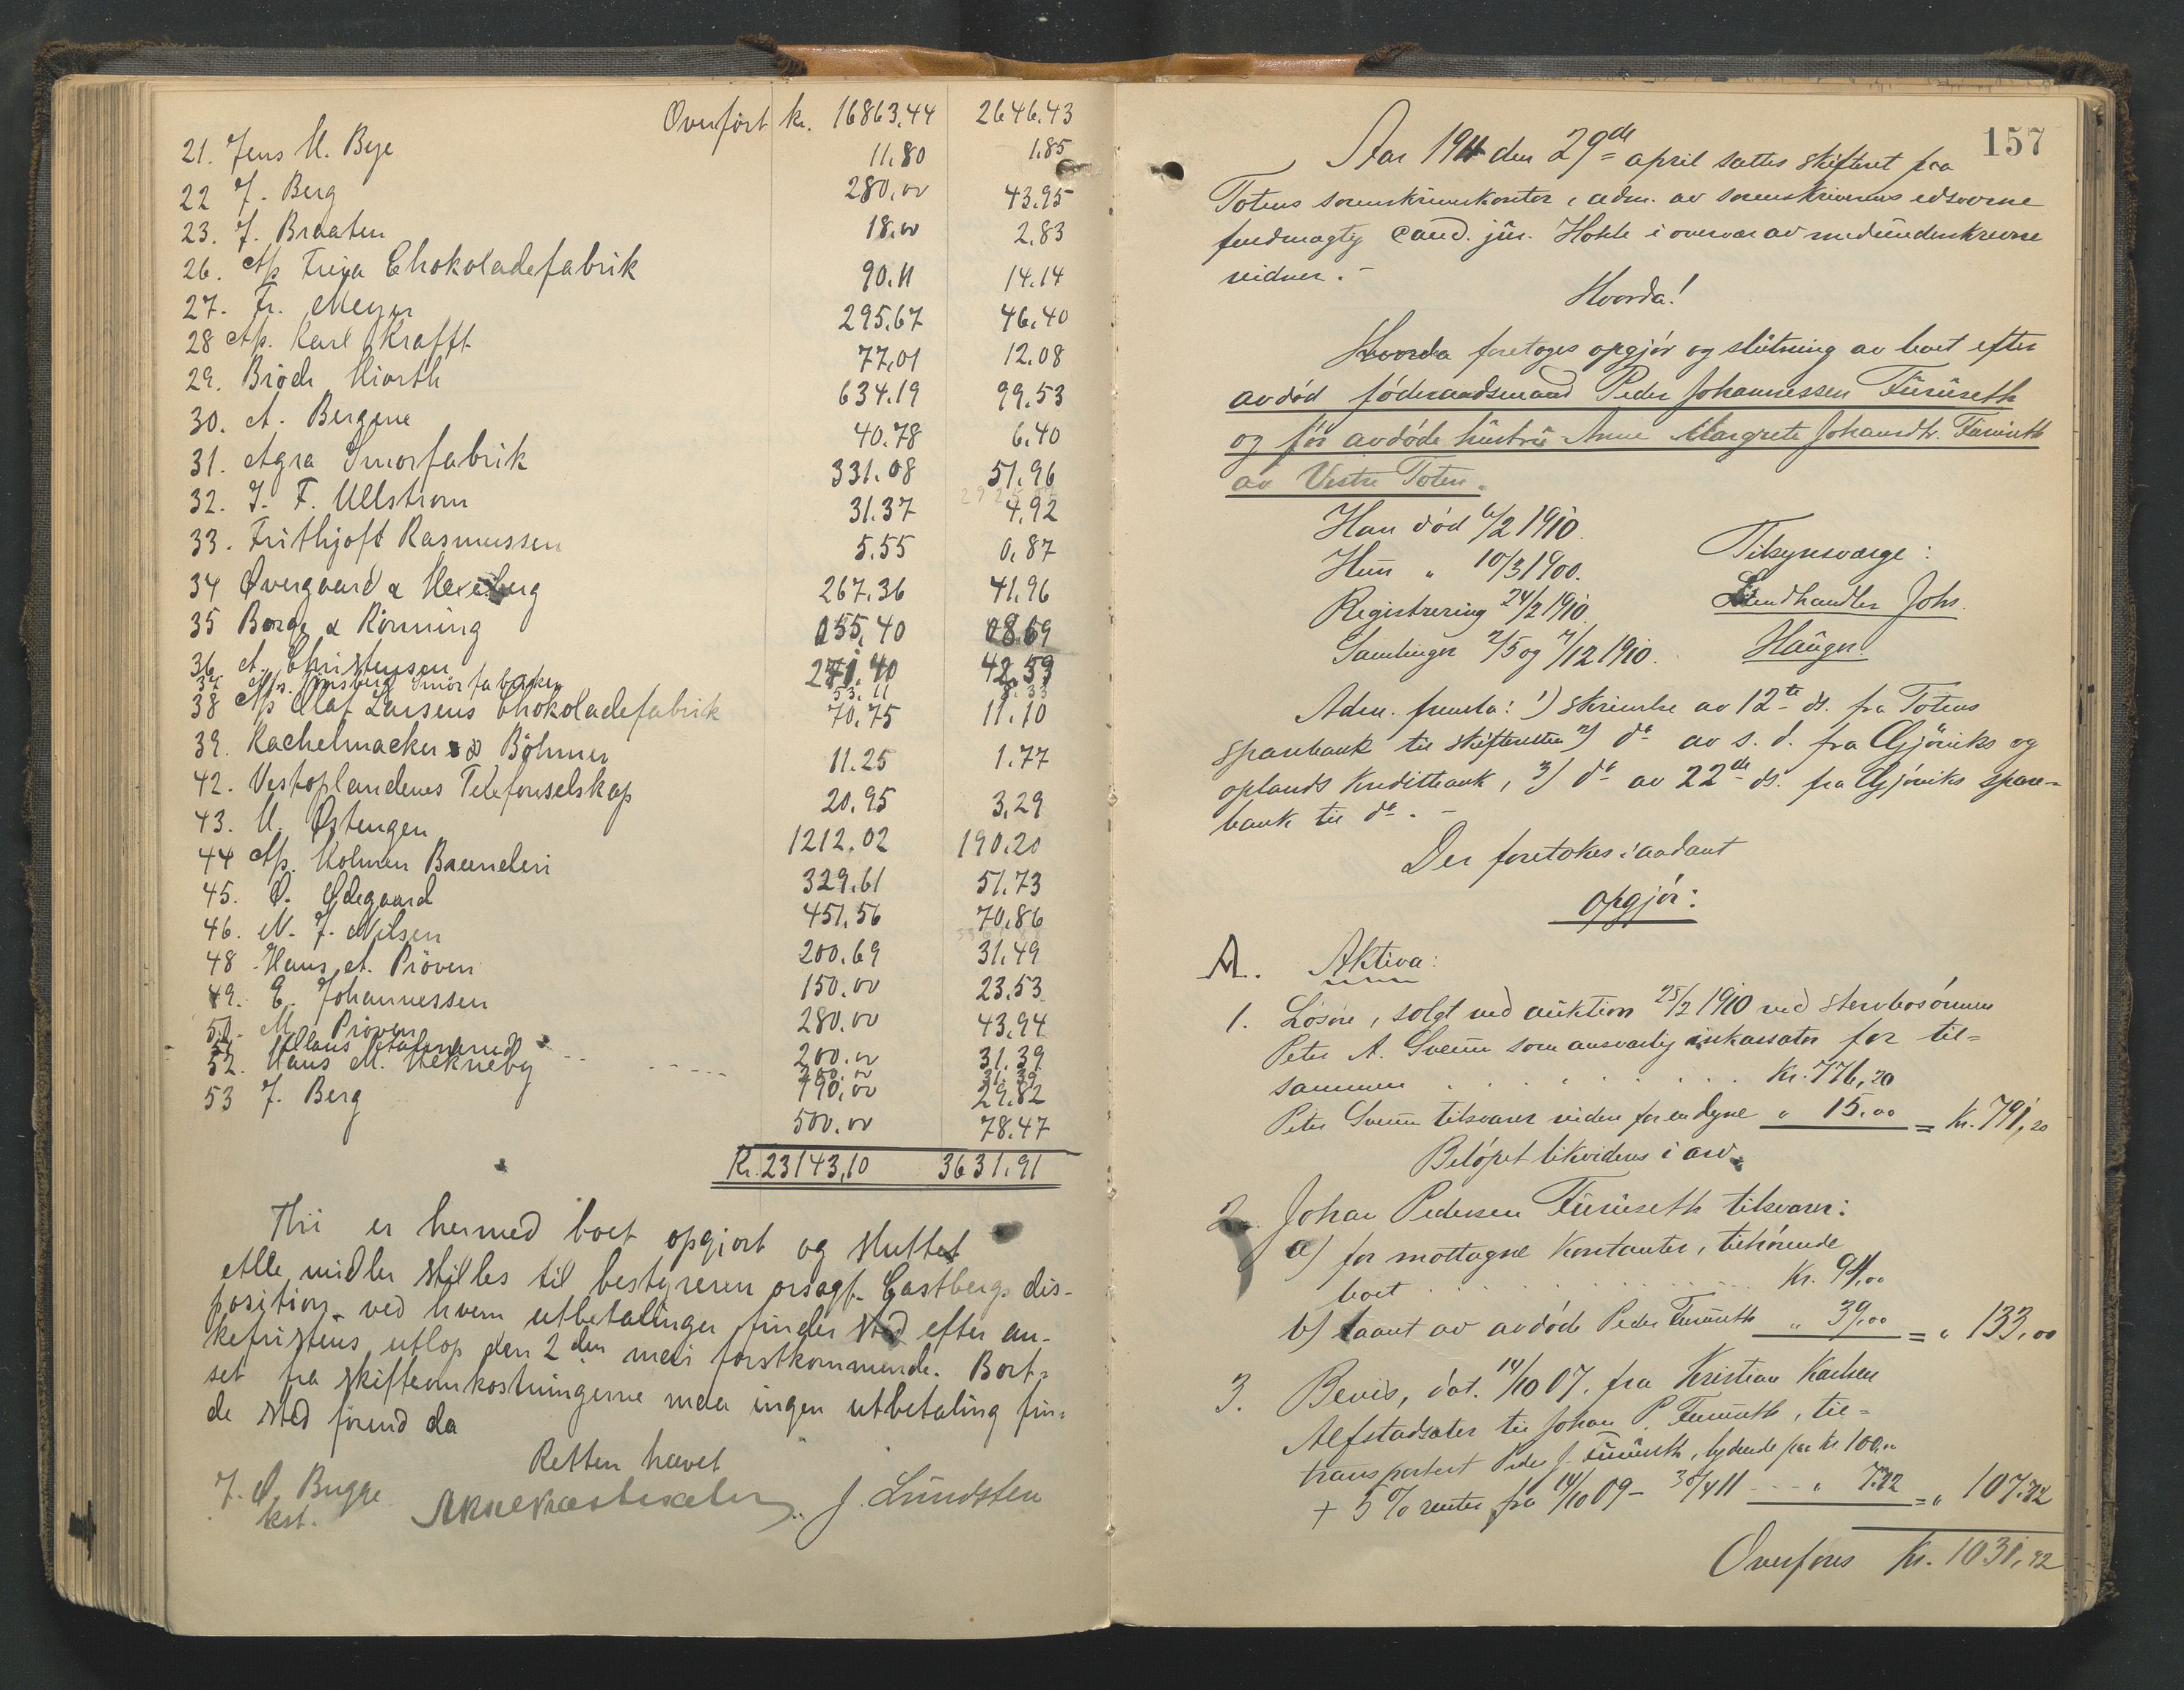 Overført kr. 16863.44 2646.43
21. Jens M. Bye 11.80 1.85
22 J. Berg 280.00 43.95
23. J. Braaten 18.00 2.83
26. A/s Freya Chokoladefabrik 90.11 14.14
27. Fr. Meyer 295.67 46.40
28 A/s. Karl Krafft 77.01 12.08
29. Brödr. Hiorth 634.19 99.53
30. A. Bergene 40.78 6.40
31. Agra Smørfabrik 331.08 51.96
32. J. F. Ullstrøm 31.37 4.92
33. Frithjoft Rasmussen 5.55 0.87
34 Øvergaard & 267.36 41.96
35 Borge & Rönning 055.40 08.69
36. A. Christensen 271.40 42.53
37 A/s. Smørfabrikker 53.11 8.33
38 A/s Olaf Larsens Chokoladefabrik 70.75 11.10
39. Kachelmacker & Böhmer 11.25 1.77
42. Vestoplandenes Telefonselskap 20.95 3.29
43. M. Østengen 1212.02 190.20
44 A/s. Holmen Brænderi 329.61 51.73
45. O. Ødegaard 451.56 70.86
46. N. J. Nilsen 200.69 31.49
48 Hans A. Pröven 150.00 23.53
49. E. Johannessen 280.00 43.94
50. M. Pröven 200.00 31.39
51 Claus 200.00 31.39
52. Hans M. Hekneby 190.00 29.82
53 J. Berg 500.00 78.47
Kr. 23143,10 3631.91
Thi er hermed boet opgjort og sluttet
Alle midler stilles til bestyreren orsagf. Castbergs dis-
position ved hvem utbetalinger finder sted efter an-
kefristens utløp den 2den mai førstkommende. Bort-
set fra skifteomkostningerne maa ingen utbetaling fin-
de sted förend da
Retten hævet
J. O. Bugge J. Lundsten
kst.
157
Aar 1911 den 29de april sattes skifteret paa
Totens sorenskriverkontor, adm. av sorenskriverens edsvorne
fuldmægtig cand. jur. Holth i overvær av medunderskrevne
vidner. -
Hvorda!
Hvorda foretoges opgjör og slutning av boet efter
avdöd föderaadsmand Peder Johannessen Furuseth
og för avdöde hustru Anne Margrete Johansdtr. Furuseth
av Vestre Toten.
Han död 6/2 1910.
Hun " 10/3 1900. Tilsynsværge:
Registrering 24/2 1910. Landhandler Johs.
Samlinger 2/5 og 7/12 1910. Hauger.
Adm. fremla: 1) skrivelse av 12te ds. fra Totens
sparebank til skifteretten 2) do av s. d. fra Gjöviks og
oplands Kreditbank, 3) do av 22de ds. fra Gjöviks spare-
bank til do. -
Der foretokes saadant
opgjör:
A. Aktiva:
1. Lösöre, solgt ved auktion 25/2 1910 ved stervbosönnen
Peter A. Sveum som ansvarlig inkassator for til-
sammen Kr. 776,20
Peter Sveum tilsvarer videre for en dyne " 15.00 = Kr. 791,20
Belöpet likvideres i arv.
2. Johan Pedersen Furuseth tilsvarer:
a) for mottagne kontanter, tilhörende
boet Kr. 94,00
b) laant av avdöde Peder Furuseth " 39,00 = " 133,00
3. Bevis, dat. 14/10 07. fra Kristian Karlsen
Alfstadsæter til Johan P. Furuseth, til-
transportert Peder J. Furuseth, lydende paa kr. 100,00
+ 5 % renter fra 14/10 09 - 30/4 11 " 7.72 = " 107.72
Overföres Kr. 1031,92